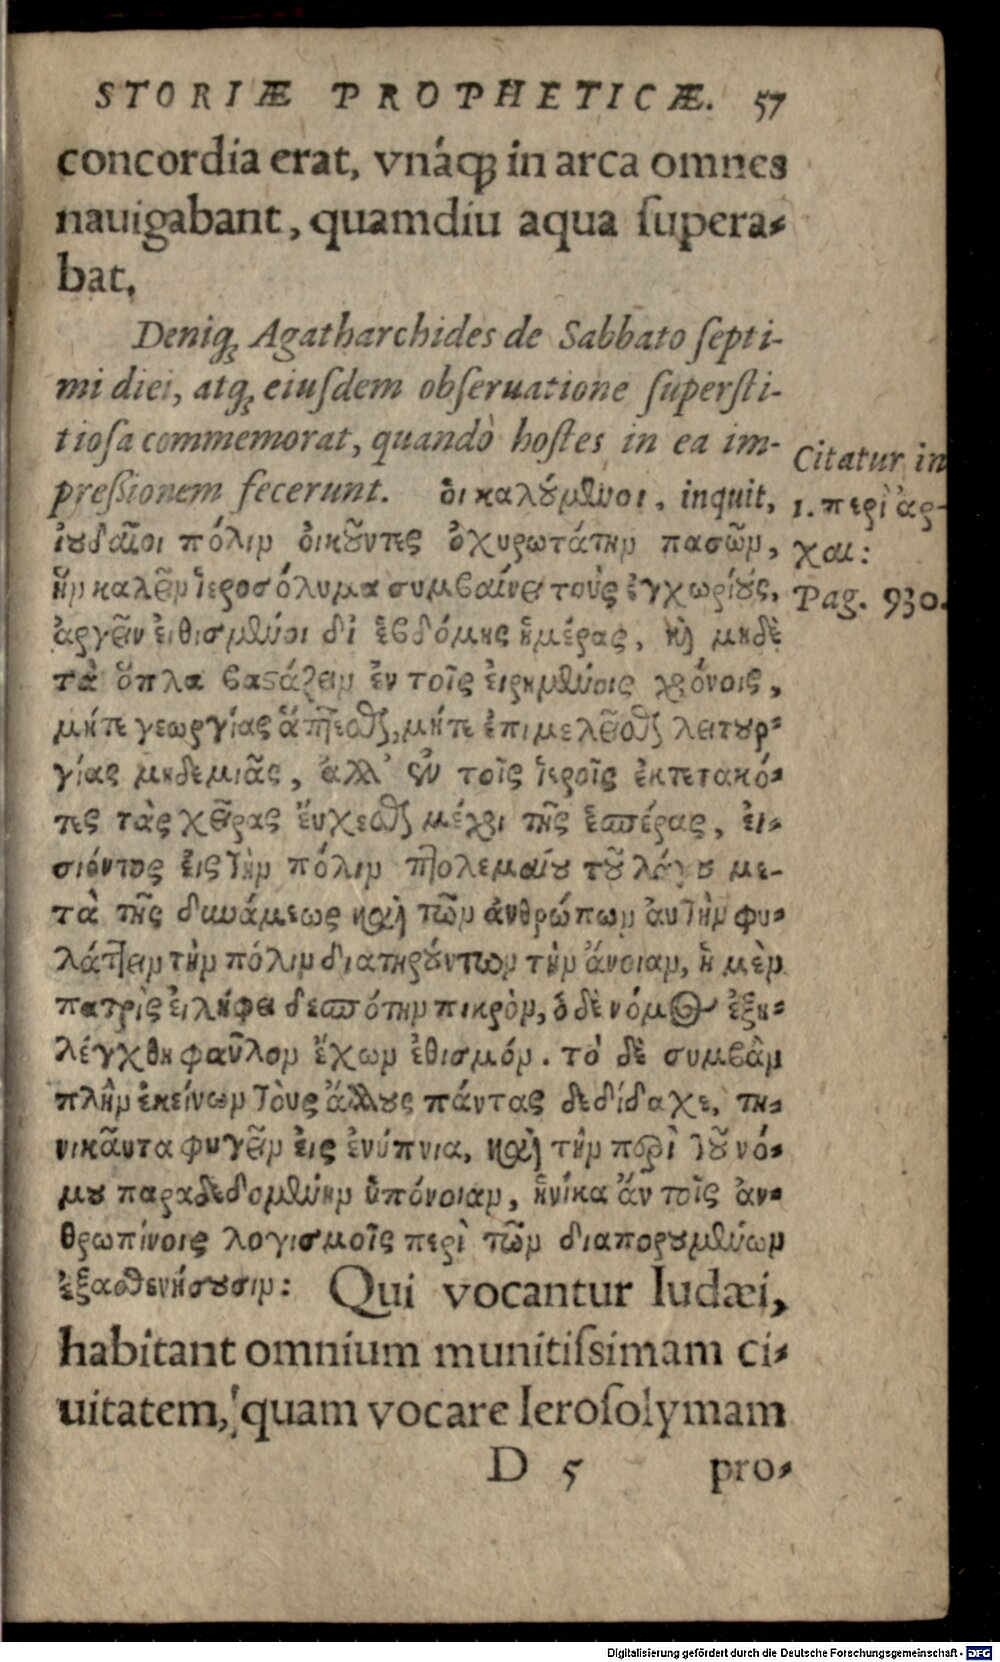 STORIÆ PROPHETICÆ. 57
concordia erat, vnáq; in arca omnes
nauigabant, quamdiu aqua ſupera-
bat.
Deniq; Agatharchides de Sabbato ſepti-
mi diei, atq; eiuſdem obſeruatione ſuperſti-
tioſa commemorat, quandò hoſtes in ea im-
preſſionem fecerunt. ὁι καλούμϑμοι, inquit,
ἰουδαῖοι πόλιμ ὀικοῦντες ὀχυρωτάτημ πασῶμ,
ἣμ καλεῖμ ἱεροσόλυμα συμβαίνει τοὺς ἐγχωρίους,
ἀργεῖν ἐιθισμένοι δι ἑβδόμης ἡμέρας, καὶ μηδὲ
τὰ ὅπλα βαστάζειμ ἐν τοῖς ἐιρημένοις χρόνοις,
μήτε γεωργίας ἅπτεσθαι, μήτε ἐπιμελεῖσθαι λειτουρ-
γίας μηδεμιᾶς, ἀλλ' ἐν τοῖς ἱεροῖς ἐκτετακό-
τες τὰς χεῖρας ἔυχεσθαι μέχρι τῆς ἑσπέρας, ἐι-
σιόντος ἐις τὴμ πόλιμ πτολεμαίου τοῦ λάγου με-
τὰ τῆς δυνάμεως καὶ τῶμ ἀνθρώπωμ ἀυτὴμ φυ-
λάττειμ τὴμ πόλιμ διατηρούντωμ τὴμ ἄνοιαμ, ἡ μὲμ
πατρὶς ἐιλήφει δεσπότημ πικρὸμ, ὁ δὲ νόμος ἐξη-
λέγχθη φαῦλομ ἔχωμ ἐθισμόμ. τὸ δὲ συμβὰμ
πλὴμ ἐκείνωμ τοὺς ἄλλους πάντας δεδίδαχε, τη-
νικᾶυτα φυγεῖμ ἐις ἐνύπνια, καὶ τὴμ περὶ τοῦ νό-
μου παραδεδομένημ ὑπόνοιαμ, ἡνίκα ἂν τοῖς ἀν-
θρωπίνοις λογισμοῖς περὶ τῶμ διαπορουμένωμ
ἐξασθενήσουσιμ: Qui vocantur Iudæi,
habitant omnium munitiſsimam ci-
uitatem, quam vocare Ieroſolymam
D 5 pro-
Citatur in
1. περὶ ἀρ-
χαι:
Pag. 930.
Digitalisierung gefördert durch die Deutsche Forschungsgemeinschaft - DFG